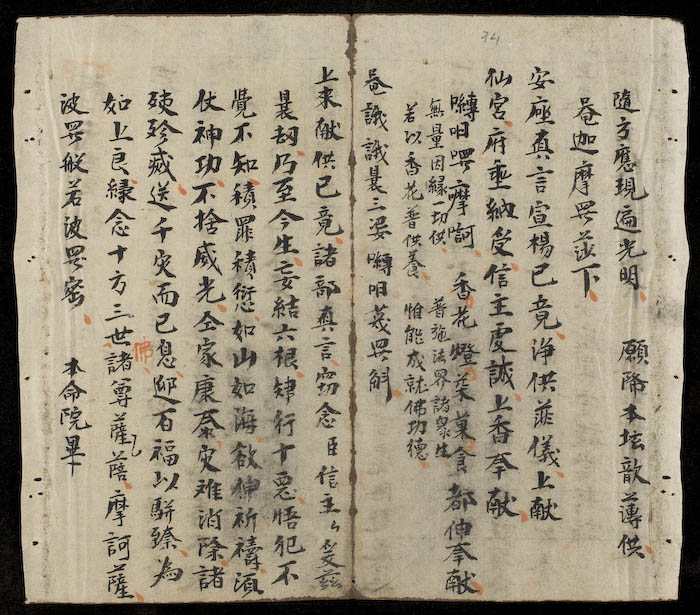 隨方應現遍光明　願降本坛歆薄供
唵迦摩㖿莎下
安座真言宣楊已竟浄供菲儀上献
仙宮府垂納受信主虔誠上香奉献
囀日囉摩訶　香花燈菜菓食都伸奉献
無量因緣一切供　普施法界諸衆生
若以香花普供養　惟能成就佛功德
唵誐誐曩三婆囀日囉斛
上来献供已竟諸部真言窃念臣信主々玆
曩刼乃至今生妄結六根肆行十悪悟犯不
覺不知積罪積愆如山如海欲伸祈禱湏
仗神功不捨威光全家康泰灾难消除諸
殃殄滅送千灾而已息迎百福以駢臻為
如上良緣念十方三世諸佛尊薩菩摩訶薩
波㖿般若波㖿密　本命院畢
34